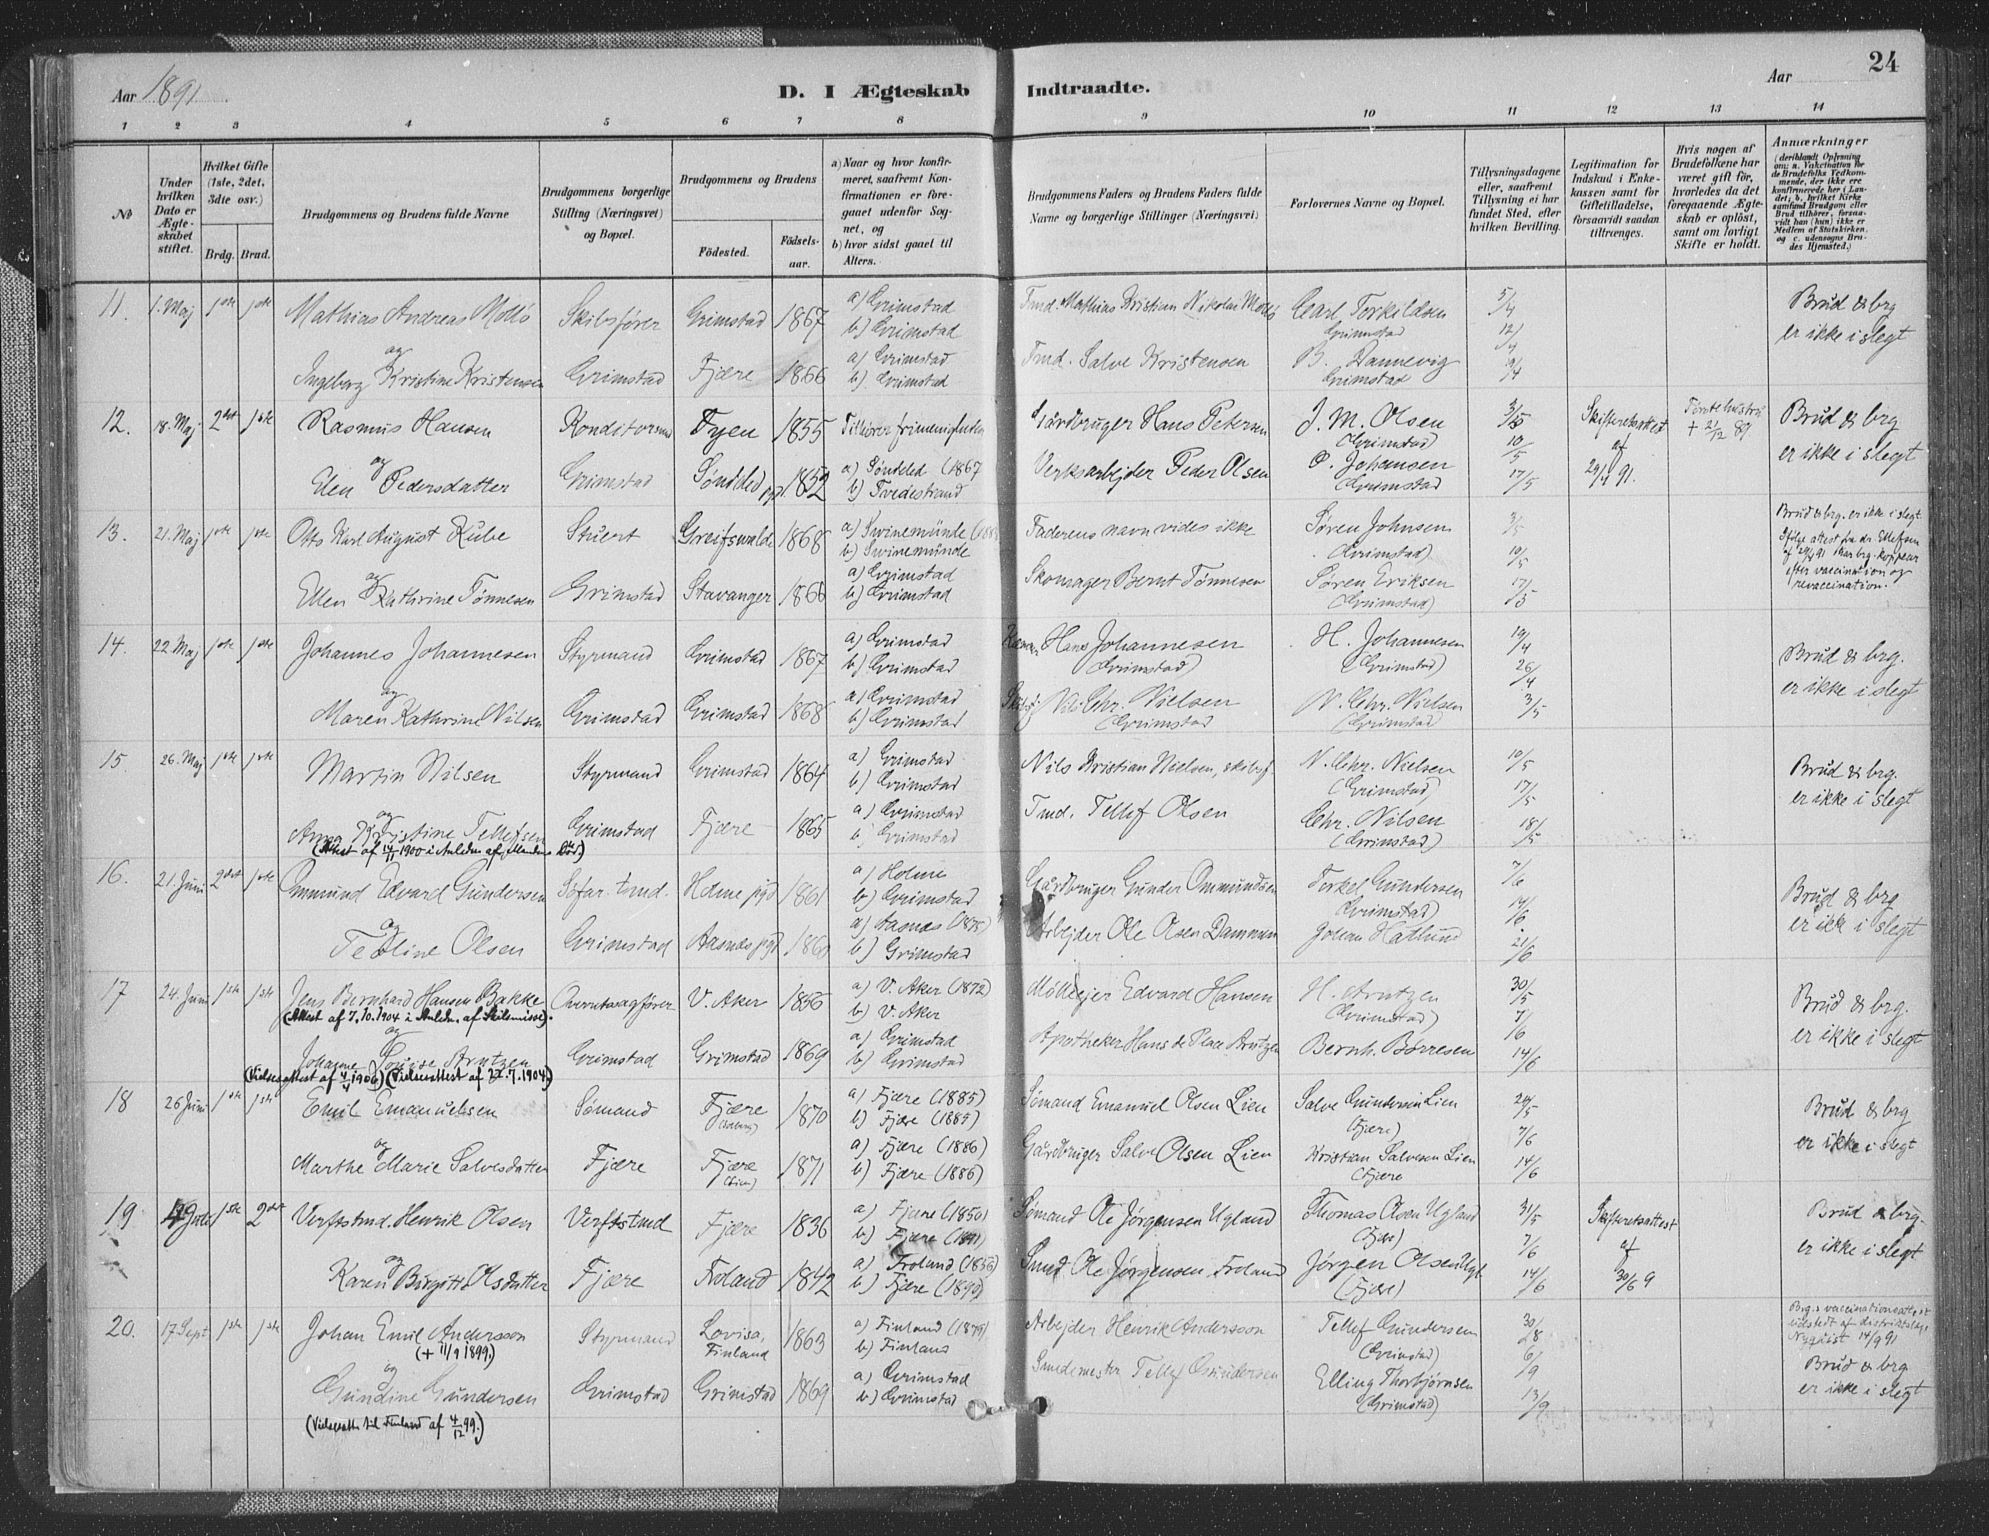 24
Aar 1891
D. I Ægteskab Indtraadte.
Aar
1 2 3 4 5 6 7 8 9 10 11 12 13 14
No
Under hvilken Dato er Ægteskabet stiftet.
Hvilket Gifte (1ste, 2det, 3die osv.)
Brdg. Brud.
Brudgommens og Brudens fulde Navne
Brudgommens borgerlige Stilling (Næringsvei) og Bopæl.
Brudgommens og Brudens
Födested. Födsels-aar.
a) Naar og hvor konfirmeret, saafremt Konfirmationen er foregaaet udenfor Sognet, og
b) hvor sidst gaaet til Alters.
Brudgommens Faders og Brudens Faders fulde Navne og borgerlige Stillinger (Næringsvei)
Forlovernes Navne og Bopæl.
Tillysningsdagene eller, saafremt Tillysning ei har fundet Sted, efter hvilken Bevilling.
Legitimation for Indskud i Enkekassen samt for Giftetilladelse, forsaavidt saadan tiltrænges.
Hvis nogen af Brudefolkene har været gift för, hvorledes da det foregaaende Ægteskab er oplöst, samt om lovligt Skifte er holdt.
Anmærkninger
11. 1. Maj 1ste 1ste Mathias Andreas Skibsfører Grimstad 1867 a) Grimstad Tmd. Mathias Kristian Nikolai Carl Torkildsen 5/4 Brud & brg
b) Grimstad Grimstad 12/4 er ikke i slegt
og Ingeborg Kristine Kristensen Grimstad Fjære 1866 a) Grimstad Tmd. Salve Kristensen B. Hannevig 19/4
b) Grimstad Grimstad
12. 18. Maj 2det 1ste Rasmus Hansen Fyen 1855 Gårdbruger Hans Petersen J. M. Olsen 3/5 Skifteretsattest + 21/12 89 Brud & brg
(Grimstad) 10/5 af er ikke i slegt
og Elen Pedersdatter Grimstad Søndeled 1852 a) Søndeled (1867 Verksarbejder Peder Olsen O. Johansen 17/5 29/4 91.
b) Tvedestrand (Grimstad
13. 21. Maj 1ste 1ste Otto Karl August Kube Stuert Greifswalde 1868 a) Swinemünde Faderens navn vides ikke Søren Johnsen 3/5 Brud & brg. er ikke i slegt
b) Swinemünde (Grimstad) 10/5
og Ellen Kathrine Tønnesen Grimstad Stavanger 1866 a) Grimstad Skomager Bernt Tønnesen Søren Eriksen 17/5 efter vaccination og
b) Grimstad (Grimstad) revaccination.
14. 22. Maj 1ste 1ste Johannes Johannesen Styrmand Grimstad 1867 a) Grimstad Hans Johannesen H. Johannesen 19/4 Brud & brg.
b) Grimstad (Grimstad) (Grimstad) 26/4 er ikke i slegt
og Maren Kathrine Nilsen Grimstad Grimstad 1868 a) Grimstad Chr. Nielsen N. Chr. Nielsen 3/5
b) Grimstad (Grimstad (Grimstad
15. 26. Maj 1ste 1ste Martin Nilsen Styrmand Grimstad 1864 a) Grimstad Nils Kristian Nielsen, skibsf. N. Chr. Nielsen 10/5 Brud & brg.
b) Grimstad (Grimstad) 17/5 er ikke i slegt
og Anna Kristine Tellefsen Grimstad Fjære 1865 a) Grimstad Tmd. Tellef Olsen Chr. Nilsen 18/5
b) Grimstad (Grimstad)
(Attest af 14/11 1900 i Anledn. af Mandens Død.)
16. 21. Juni 2det 1ste Ommund Edvard Gundersen Søfar. tmd. Holme pgd 1861 a) Holme Gårdbruger Gunder Ommundsen Torkel Gundersen 7/6 Brud & brg
b) Grimstad (Grimstad) 14/6 er ikke i slegt
og Olsen Grimstad Aasnæs pgd 1860 a) Aasnæs (1875) Arbejder Ole Olsen Dammen Johan Hatlund 21/6
b) Grimstad
17 24. Juni 1ste 1ste Jens Bernhard Hansen Bakke Overretssagfører V. Aker 1856 a) V. Aker (1872) Mølleejer Edvard Hansen H. Arntzen 30/5 Brud & brg
(Attest af 7.10.1904 i Anledn. af Skilsmisse). b) V. Aker (Grimstad) 7/6 er ikke i slegt
og Johanne Louise Arntzen Grimstad Grimstad 1869 a) Grimstad Apotheker Hans de Place Arntzen Bernh. Børresen 14/6
b) Grimstad
(Vielsesattest af 4/4 1906) (Vielsesattest af 27.7.1904.)
18 26 Juni 1ste 1ste Emil Emanuelsen Sømand Fjære 1870 a) Fjære (1885) Sømand Emanuel Olsen Lien Salve Gundersen Lien 24/5 Brud & brg
b) Fjære (1885) (Fjære) 7/6 er ikke i slegt
og Marthe Marie Salvesdatter Fjære Fjære (Lien) 1871 a) Fjære (1886) Gårdbruger Salve Olsen Lien Kristian Salvesen Lien 14/6
b) Fjære (1886) (Fjære
19 1ste 2det Verftstmd. Henrik Olsen Verftstmd Fjære 1836 a) Fjære (1850) Sømand Ole Jørgensen Ugland Thomas Olsen Ugland 31/5 Skifteretsattest Brud & brg.
b) Fjære (1891) (Fjære) 7/6 af er ikke i slegt
og Karen Birgitte Olsdatter Fjære Froland 1842 a) Froland (1856) Ole Jørgensen Froland Jørgen Olsen Ugl. 14/6 30/6 9
b) Fjære (1890) (Fjære)
20. 17 Sept 1ste 1ste Johan Emil Andersson Styrmand Lovisa, Finland 1863 a) Finland (1879) Arbejder Henrik Andersson Tellef Gundersen 30/8 Brg.s vaccinationsattest
(+ 11/9 1899) b) Finland (Grimstad) 6/9 udstedt af distriktslæge Nyquist 14/9 91
og Gundine Gundersen Grimstad Grimstad 1869 a) Grimstad Smedemester Tellef Gundersen Elling Thorbjørnsen 13/9 Brud & brg
b) Grimstad (Grimstad) er ikke i slegt
(Vielsesattest til Finland af 4/12 99.)